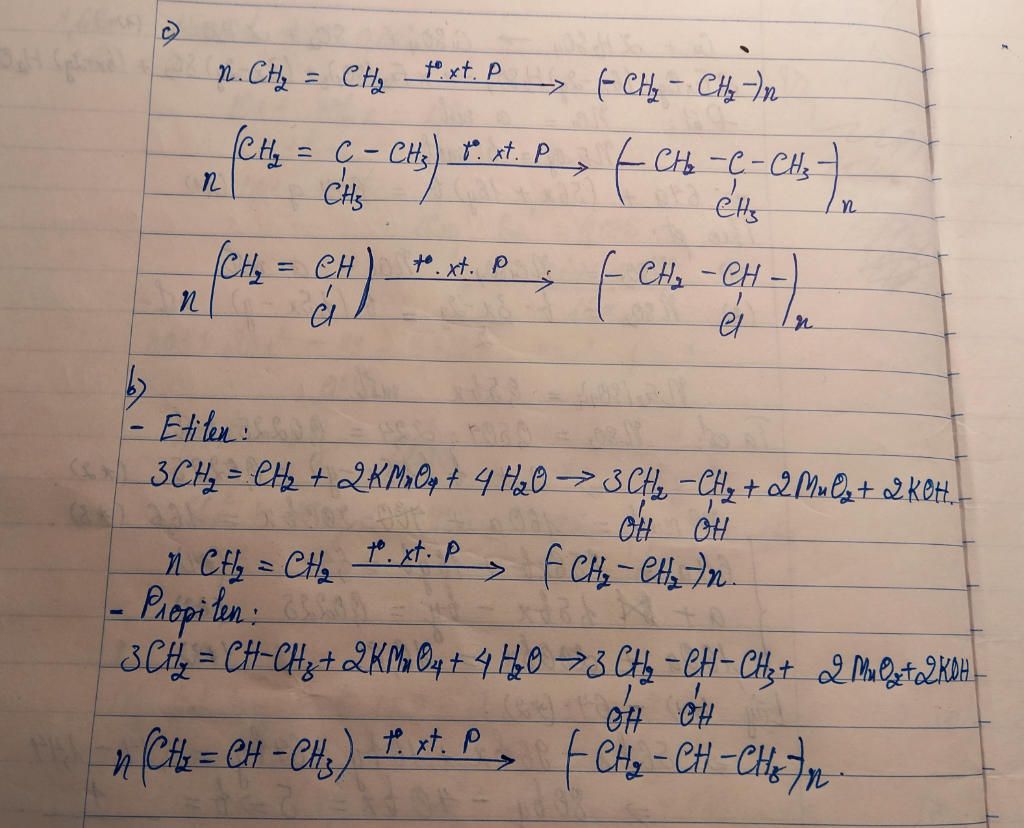 c)
n. CH2 = CH2 t°. xt. P → (- CH2 - CH2 -)n
n (CH2 = C - CH3) t°. xt. P → (- CH2 - C - CH3 -)n
CH3 CH3
n (CH2 = CH) t°. xt. P → (- CH2 - CH -)n
Cl Cl
b)
- Etilen:
3CH2 = CH2 + 2KMnO4 + 4H2O → 3CH2 - CH2 + 2MnO2 + 2KOH.
OH OH
n CH2 = CH2 t°. xt. P → (- CH2 - CH2 -)n.
- Propilen:
3CH2 = CH-CH3 + 2KMnO4 + 4H2O → 3CH2 - CH - CH3 + 2MnO2 + 2KOH
OH OH
n (CH2 = CH - CH3) t°. xt. P → (- CH2 - CH - CH3 -)n.